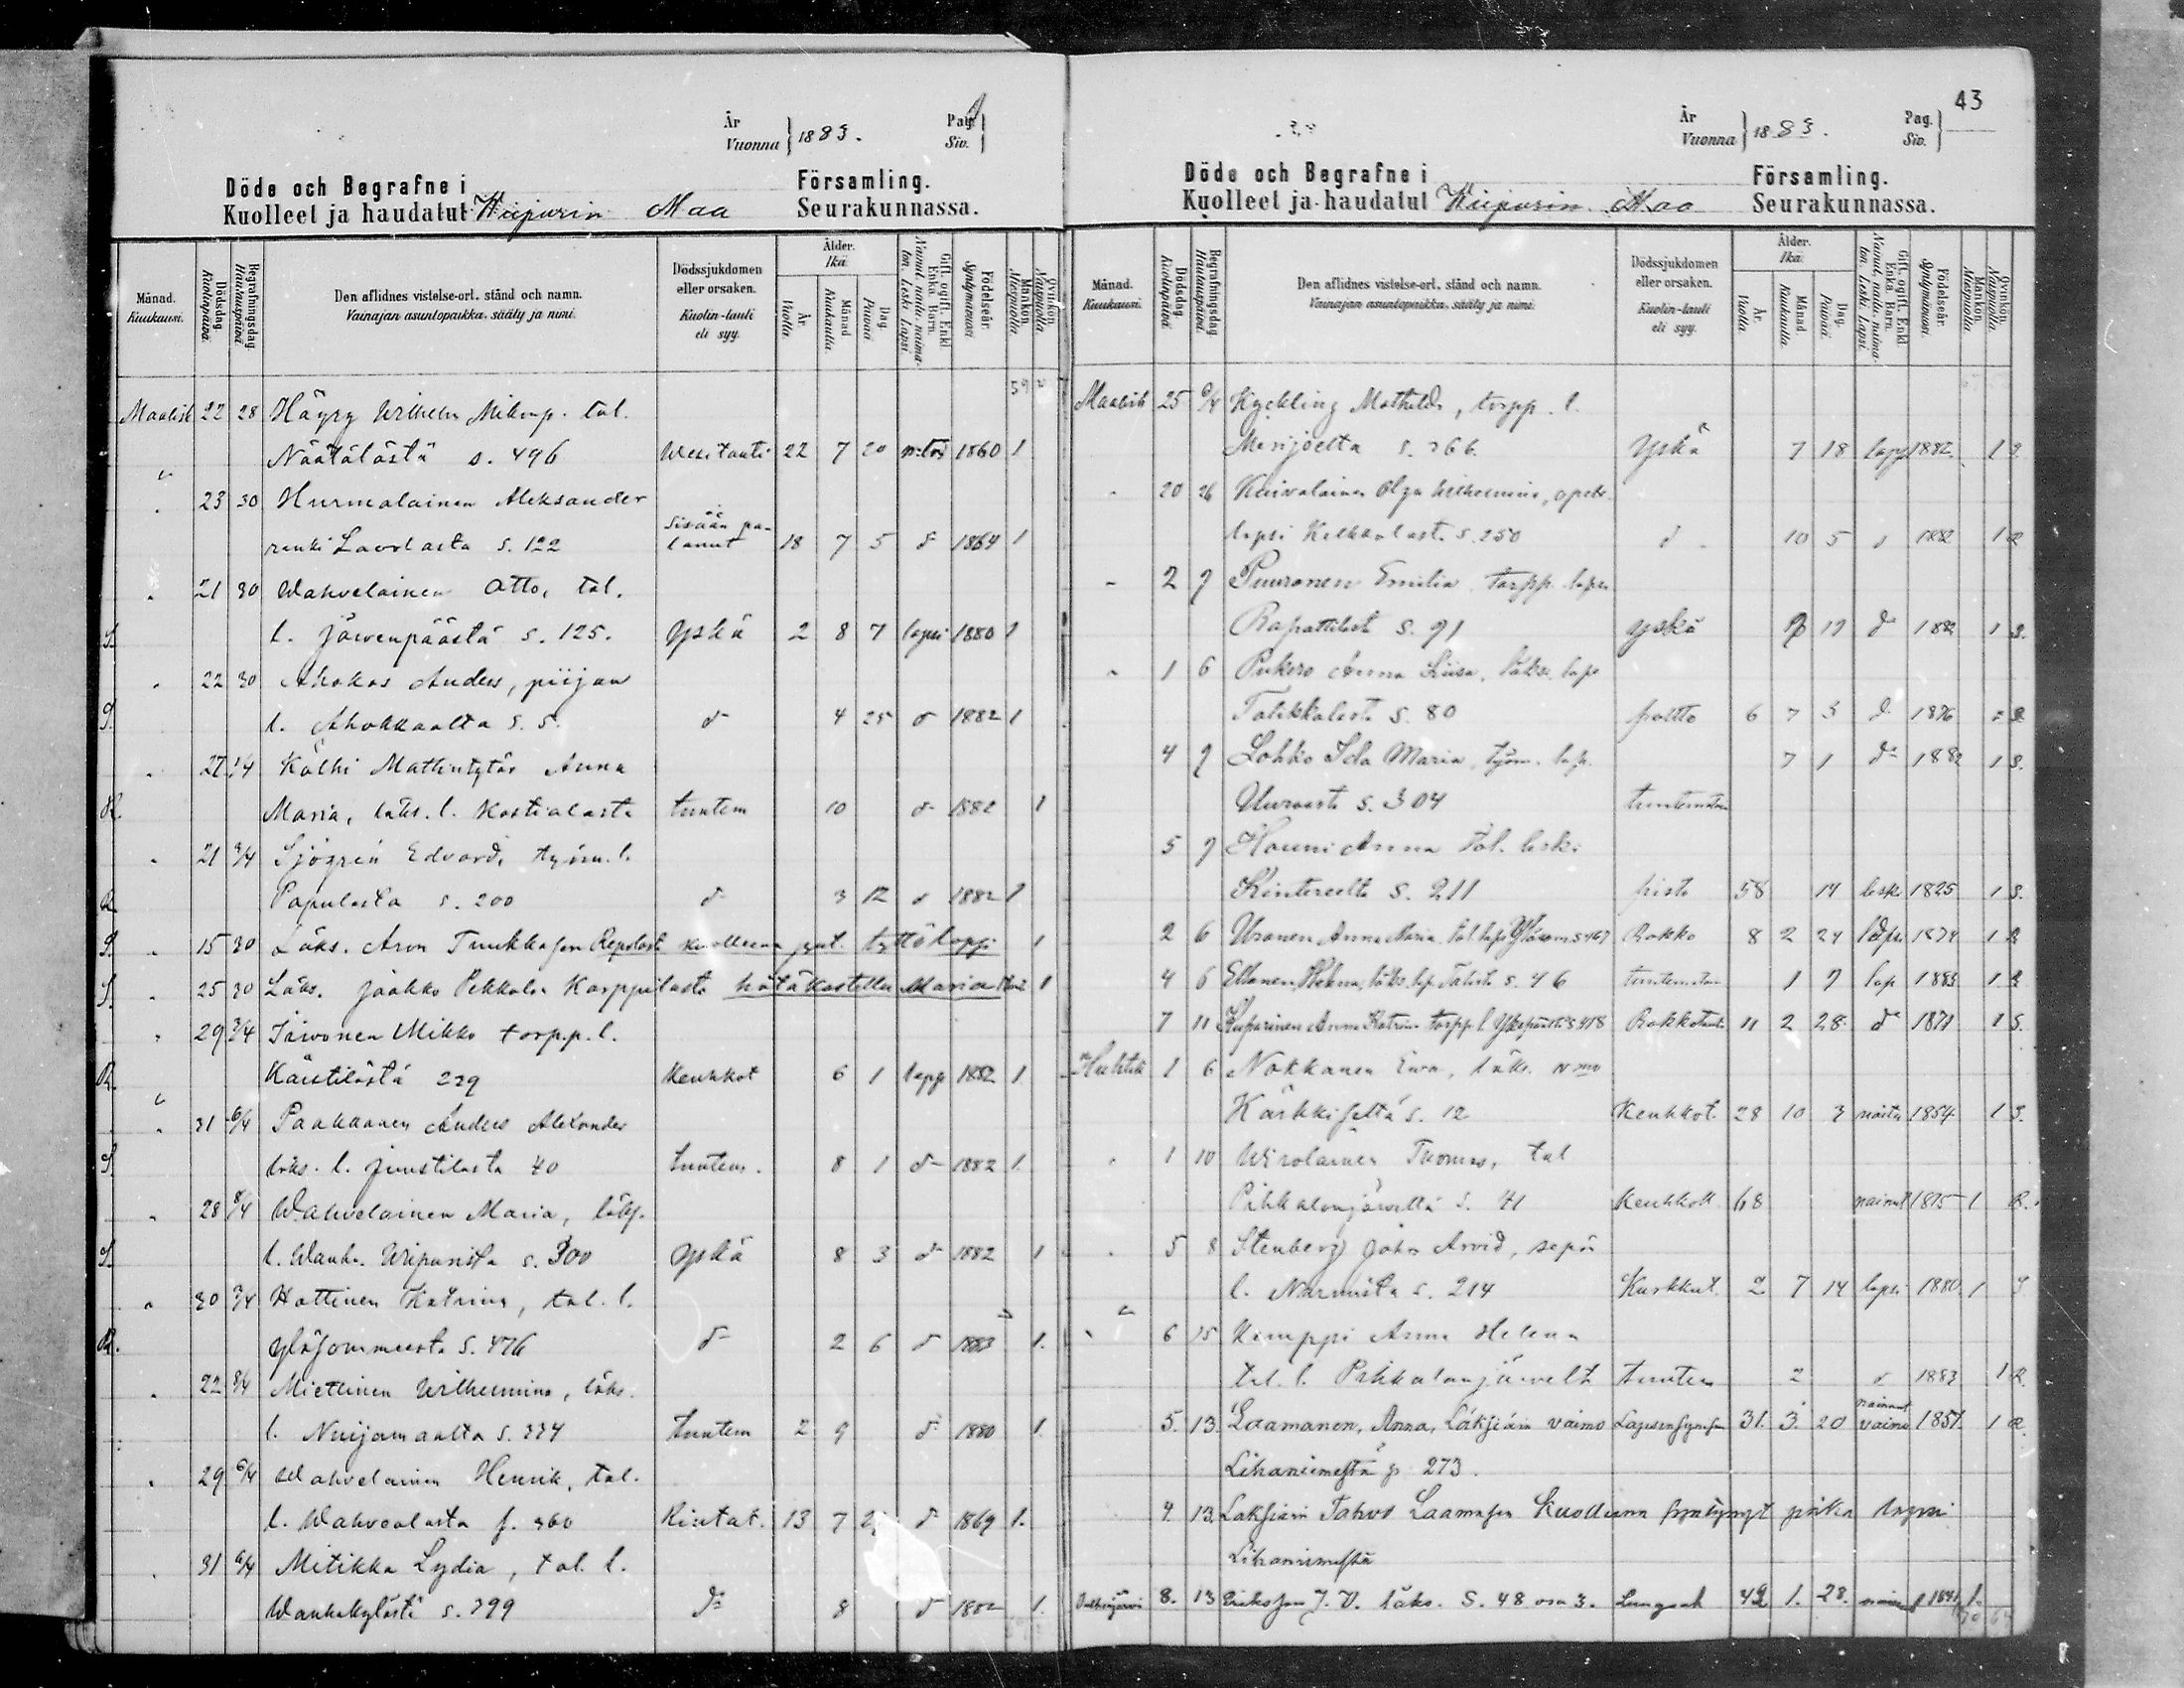 År
Vuonna 1883.
Pag.
Siv.
Döde och Begrafne i Församling.
Kuolleet ja haudatut Wiipurin Maa Seurakunnassa.
Månad.
Kuukausi.
Dödsdag.
Kuolinpäivä.
Begrafningsdag.
Hautauspäivä.
Den aflidnes vistelse-ort, stånd och namn.
Vainajan asuntopaikka, sääty ja nimi.
Dödssjukdomen eller orsaken.
Kuolin-tauti eli syy.
Ålder.
Ikä.
År.
Vuotta.
Månad
Kuukautta
Dag.
Päivää
Gift, ogift, Enkl.
Enka, Barn.
Nainut, naitu, naima-
ton, Leski, Lapsi.
Födelseår.
Syntymävuosi.
Mankön.
Miespuolia.
Qvinkön.
Vaispuolia.
59
Maalisk 22 28 Häyry Wilhelm Mikonp. tal.
Näätälästä s. 496 Wesitauti 22 7 20 1860 1
23 30 Hurmalainen Aleksander
renki Lavolasta s. 122 Sisään palanut 18 7 5 d 1864 1
21 30 Wahvelainen Otto, tal.
S. l. Järvenpäästä s. 125. Yskä 2 8 7 lapsi 1880 1
22 30 Ahokas Anders, piijan
S. l. Ahokkaalta s. 5. d 4 25 d 1882 1
27 1/4 Kälhi Mattintytär Anna
R. Maria, läks. l. Kostialasta tuntem 10 d 1882 1
21 3/4 Sjögren Edvard, työm. l.
R Papulasta s. 200 d 3 12 d 1882 1
S. 15 30 Läks. Aron Tuukkasen Repolast kuolleena synt. tyttölapsi 1
S. 25 30 Läks. Jaakko Pekkalan Karppilasta hätäkastettu Maria 1
29 3/4 Toivonen Mikko torpp. l.
R. Käistilästä 229 Keuhkot 6 1 laps 1882 1
31 6/4 Paakkanen Anders Alexander
S läks. l. Juustilasta 40 tuntem. 8 1 d 1882 1.
28 8/4 Wahvelainen Maria, läks.
S. l. Wanh. Wiipurista s. 300 Yskä 8 3 d 1882 1
30 3/4 Hottinen Katrina, tal. l.
R. Yläsommeesta s. 476 d 2 6 d 1883 1.
22 8/4 Miettinen Wilhelmina, läks.
l. Nuijamaalta s. 334 tuntem 2 9 d 1880 1.
29 6/4 Wahvelainen Henrik, tal.
l. Wahvealasta s. 360 Rintat. 13 7 d 1869 1.
31 6/4 Mitikka Lydia, tal. l.
Wanhakylästä s. 399 do 8 d 1882 1.
43
År
Vuonna 1883.
Pag.
Siv.
Döde och Begrafne i Församling.
Kuolleet ja haudatut Wiipurin Maa Seurakunnassa.
Månad.
Kuukausi.
Dödsdag.
Kuolinpäivä.
Begrafningsdag.
Hautauspäivä.
Den aflidnes vistelse-ort, stånd och namn.
Vainajan asuntopaikka, sääty ja nimi.
Dödssjukdomen eller orsaken.
Kuolin-tauti eli syy.
Ålder.
Ikä.
År.
Vuotta.
Månad.
Kuukautta.
Dag.
Päivää.
Gift, ogift, Enkl.
Enka, Barn.
Nainut, naitu, naima-
ton, Leski, Lapsi.
Födelseår.
Syntymävuosi.
Mankön.
Miespuolia.
Qvinkön.
Vaispuolia.
Maalisk 25 6/4 Kyckling Mathilda, torpp. l.
Merijoelta s. 366. Yskä 7 18 laps 1882. 1 S.
20 26 Kaivolainen Olga Wilhelmina,
lapsi Kelkkalast. s. 250 d 10 5 d 1882 1 R
2 7 Puuronen Emilia torpp. lapsi
Rapattilast s. 91 yskä 17 d 1882 1 S.
1 6 Pukero Anna Liisa, läks. laps
Talikkalasta s. 80 poltto 6 7 3 d 1876 S
4 7 Lohko Ida Maria, työm. lap. 7 1 do 1882 1 S.
Uuraast s. 304 tuntematon
5 7 Houni Anna tal. leski
Kintereelt s. 211 pisto 58 14 lesk. 1825 1 S.
2 6 Uronen Anna Maria tal. laps Yläsom s 467 Rokko 8 2 24 laps 1874 1 R
4 6 Ellonen Helena, läks. lap. Talist s. 46 tuntematon 1 7 lap 1883 1 R
7 11 Kuparinen Anna Katrina torpp. l. Yksipäält s. 418 Rokkotauti 11 2 28 do 1871 1 S.
Huhtik 1 6 Nokkanen Ewa, läks. vmo
Kärkkiseltä s. 12 Keuhkot 28 10 3 naitu 1854 1 S.
1 10 Wirolainen Thomas, tal
Pihkalanjärveltä s. 41 Keuhkott 68 nainut 1815 1 R.
5 8 Stenberg Johan Arvid, sepän
l. Nurmista s. 214 Kurkkut. 2 7 14 lapsi 1880 1 S
6 15 Kemppi Anna Helena
tal. l. Pihkalanjärvelt tuntem 2 d 1883 1 R.
5. 13. Laamanen, Anna, Läksiäin vaimo Lapsensynnyt 31. 3. 20 nainut vaimo 1851. 1 R.
Lihaniemestä s. 273.
4. 13. Läksiäin Tahvo Laamasen Kuolleena syntynyt poika lapsi
Lihaniemestä
8. 13 Eriksson J. V. läks. S. 48 3. Lungsot 42 1. 28. nainut 1841 1.
70 64